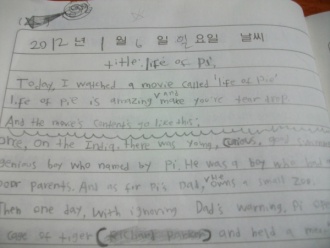 2012년 1월 6일 일요일 날씨
title: life of Pi,
Today, I watched a movie called 'life of Pie'
life of pie is amazing and make you're tear drop.
And the movie's contents go like this;
once, on the India, there was young,
genious boy who named by Pi. He was a boy who had
poor parents. And as for Pi's Dad, he owns a small zoo.
Then one day, with ignoring Dad's warning, Pi
cage of tiger (Richard Parker) and held a